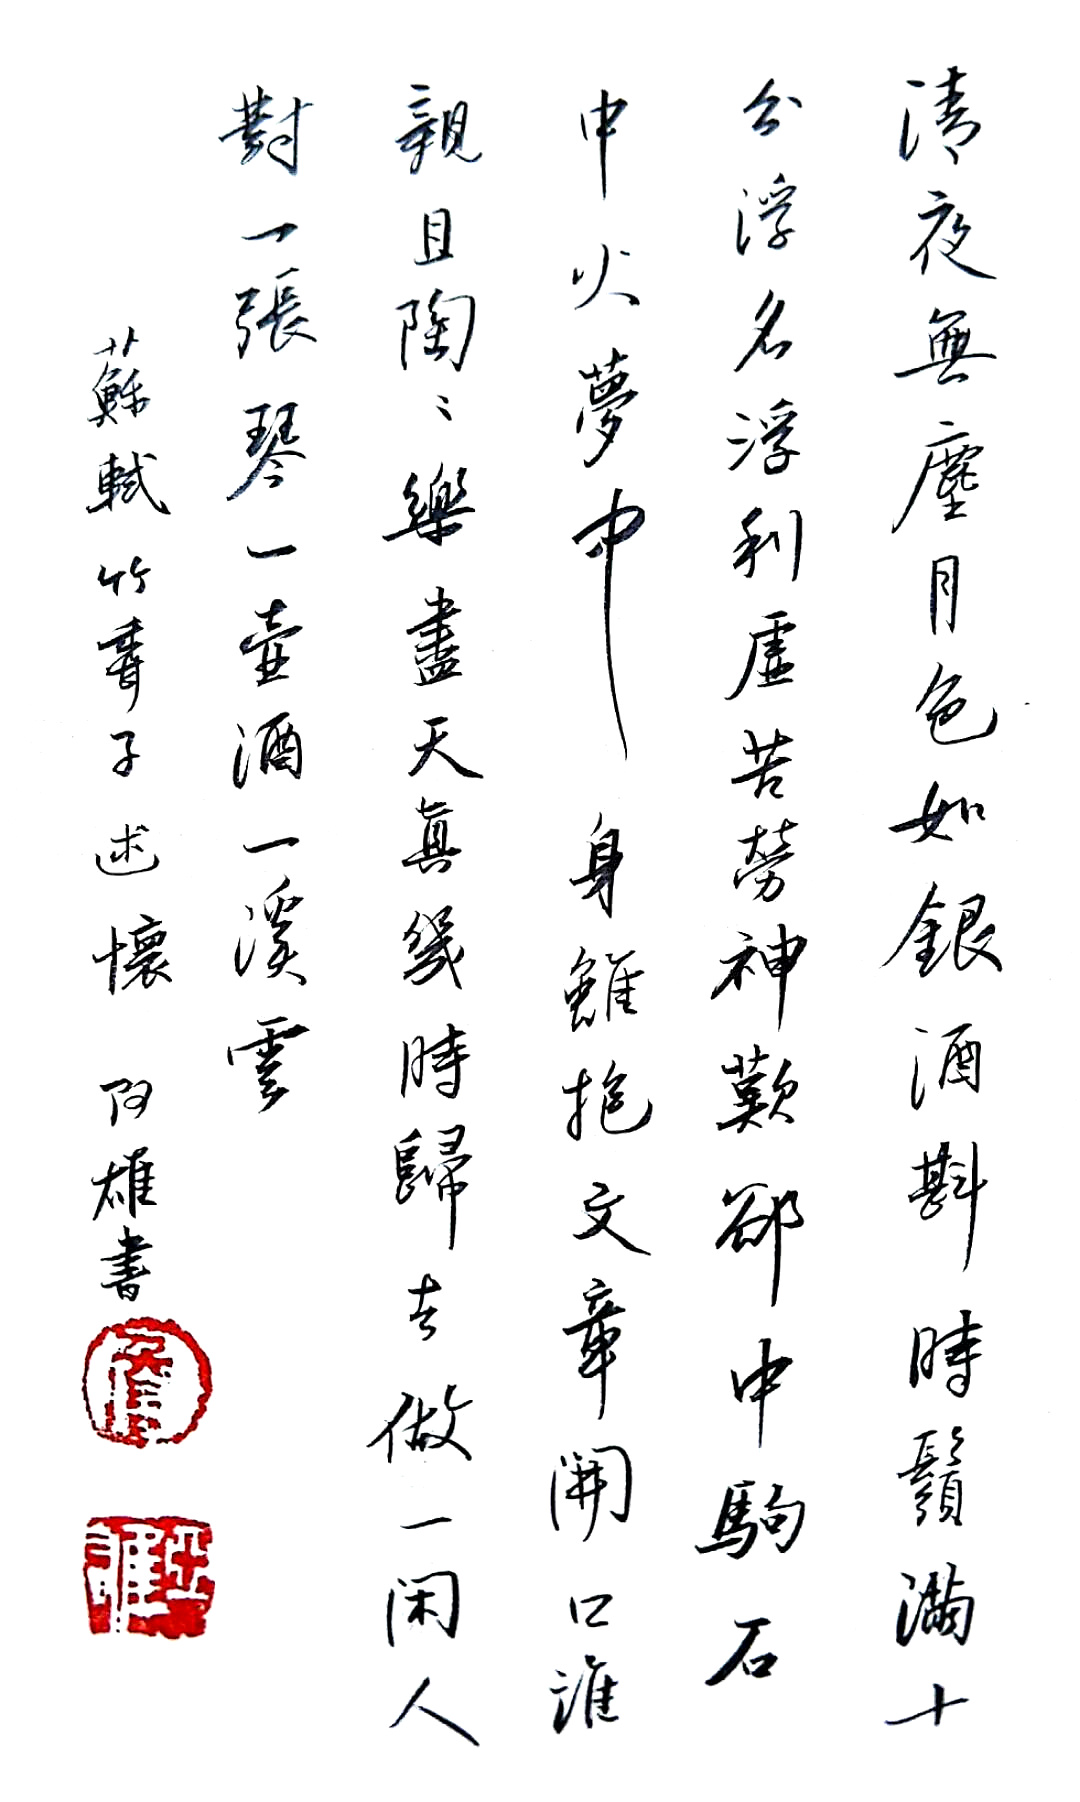 清夜無塵月色如銀酒斟時鬚滿十
分浮名浮利虛苦勞神歎郤中駒石
中火夢中身雖抱文章開口誰
親且陶〻樂盡天真幾時歸去做一閑人
對一張琴一壺酒一溪雲
蘇軾 竹香子 述懷 阿雄書